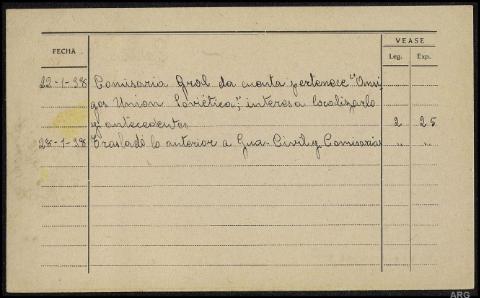 VEASE
FECHA
Leg. Exp.
22-1-38 Comisaria Gral da cuenta pertenece "Ami,
gos Union Soviética"; interesa localizarlo
y antecedentes 2 25
28-1-38 Trasladé lo anterior a Gua-Civil y Comisaria " "
ARG